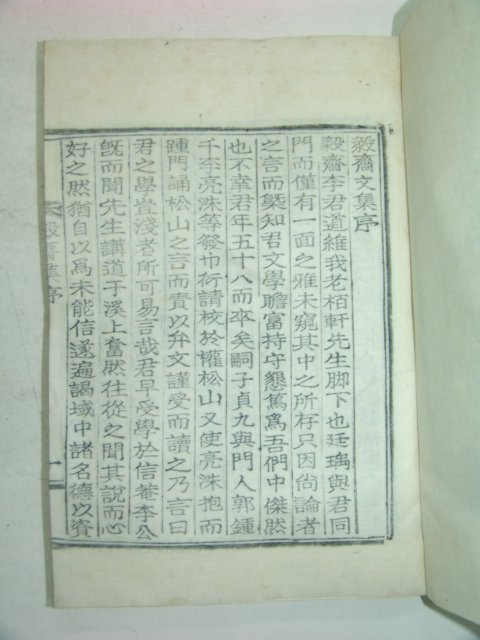 毅齋文集序
毅齋李君道維我老栢軒先生脚下也廷瑀與君同
門而僅有一面之雅未窺其中之所存只因尙論者
之言而槩知君文學贍富持守懇篤爲吾們中傑然
也不幸君年五十八而卒矣嗣子貞九與門人郭鍾
千李亮洙等發巾衍請校於權松山又使亮洙抱而
踵門誦松山之言而責以弁文謹受而讀之乃言曰
君之學豈淺者所可易言哉君早受學於信菴李公
旣而聞先生講道于溪上奮然往從之聞其說而心
好之然猶自以爲未能信遂遍謁域中諸名德以資
毅齋集序 一